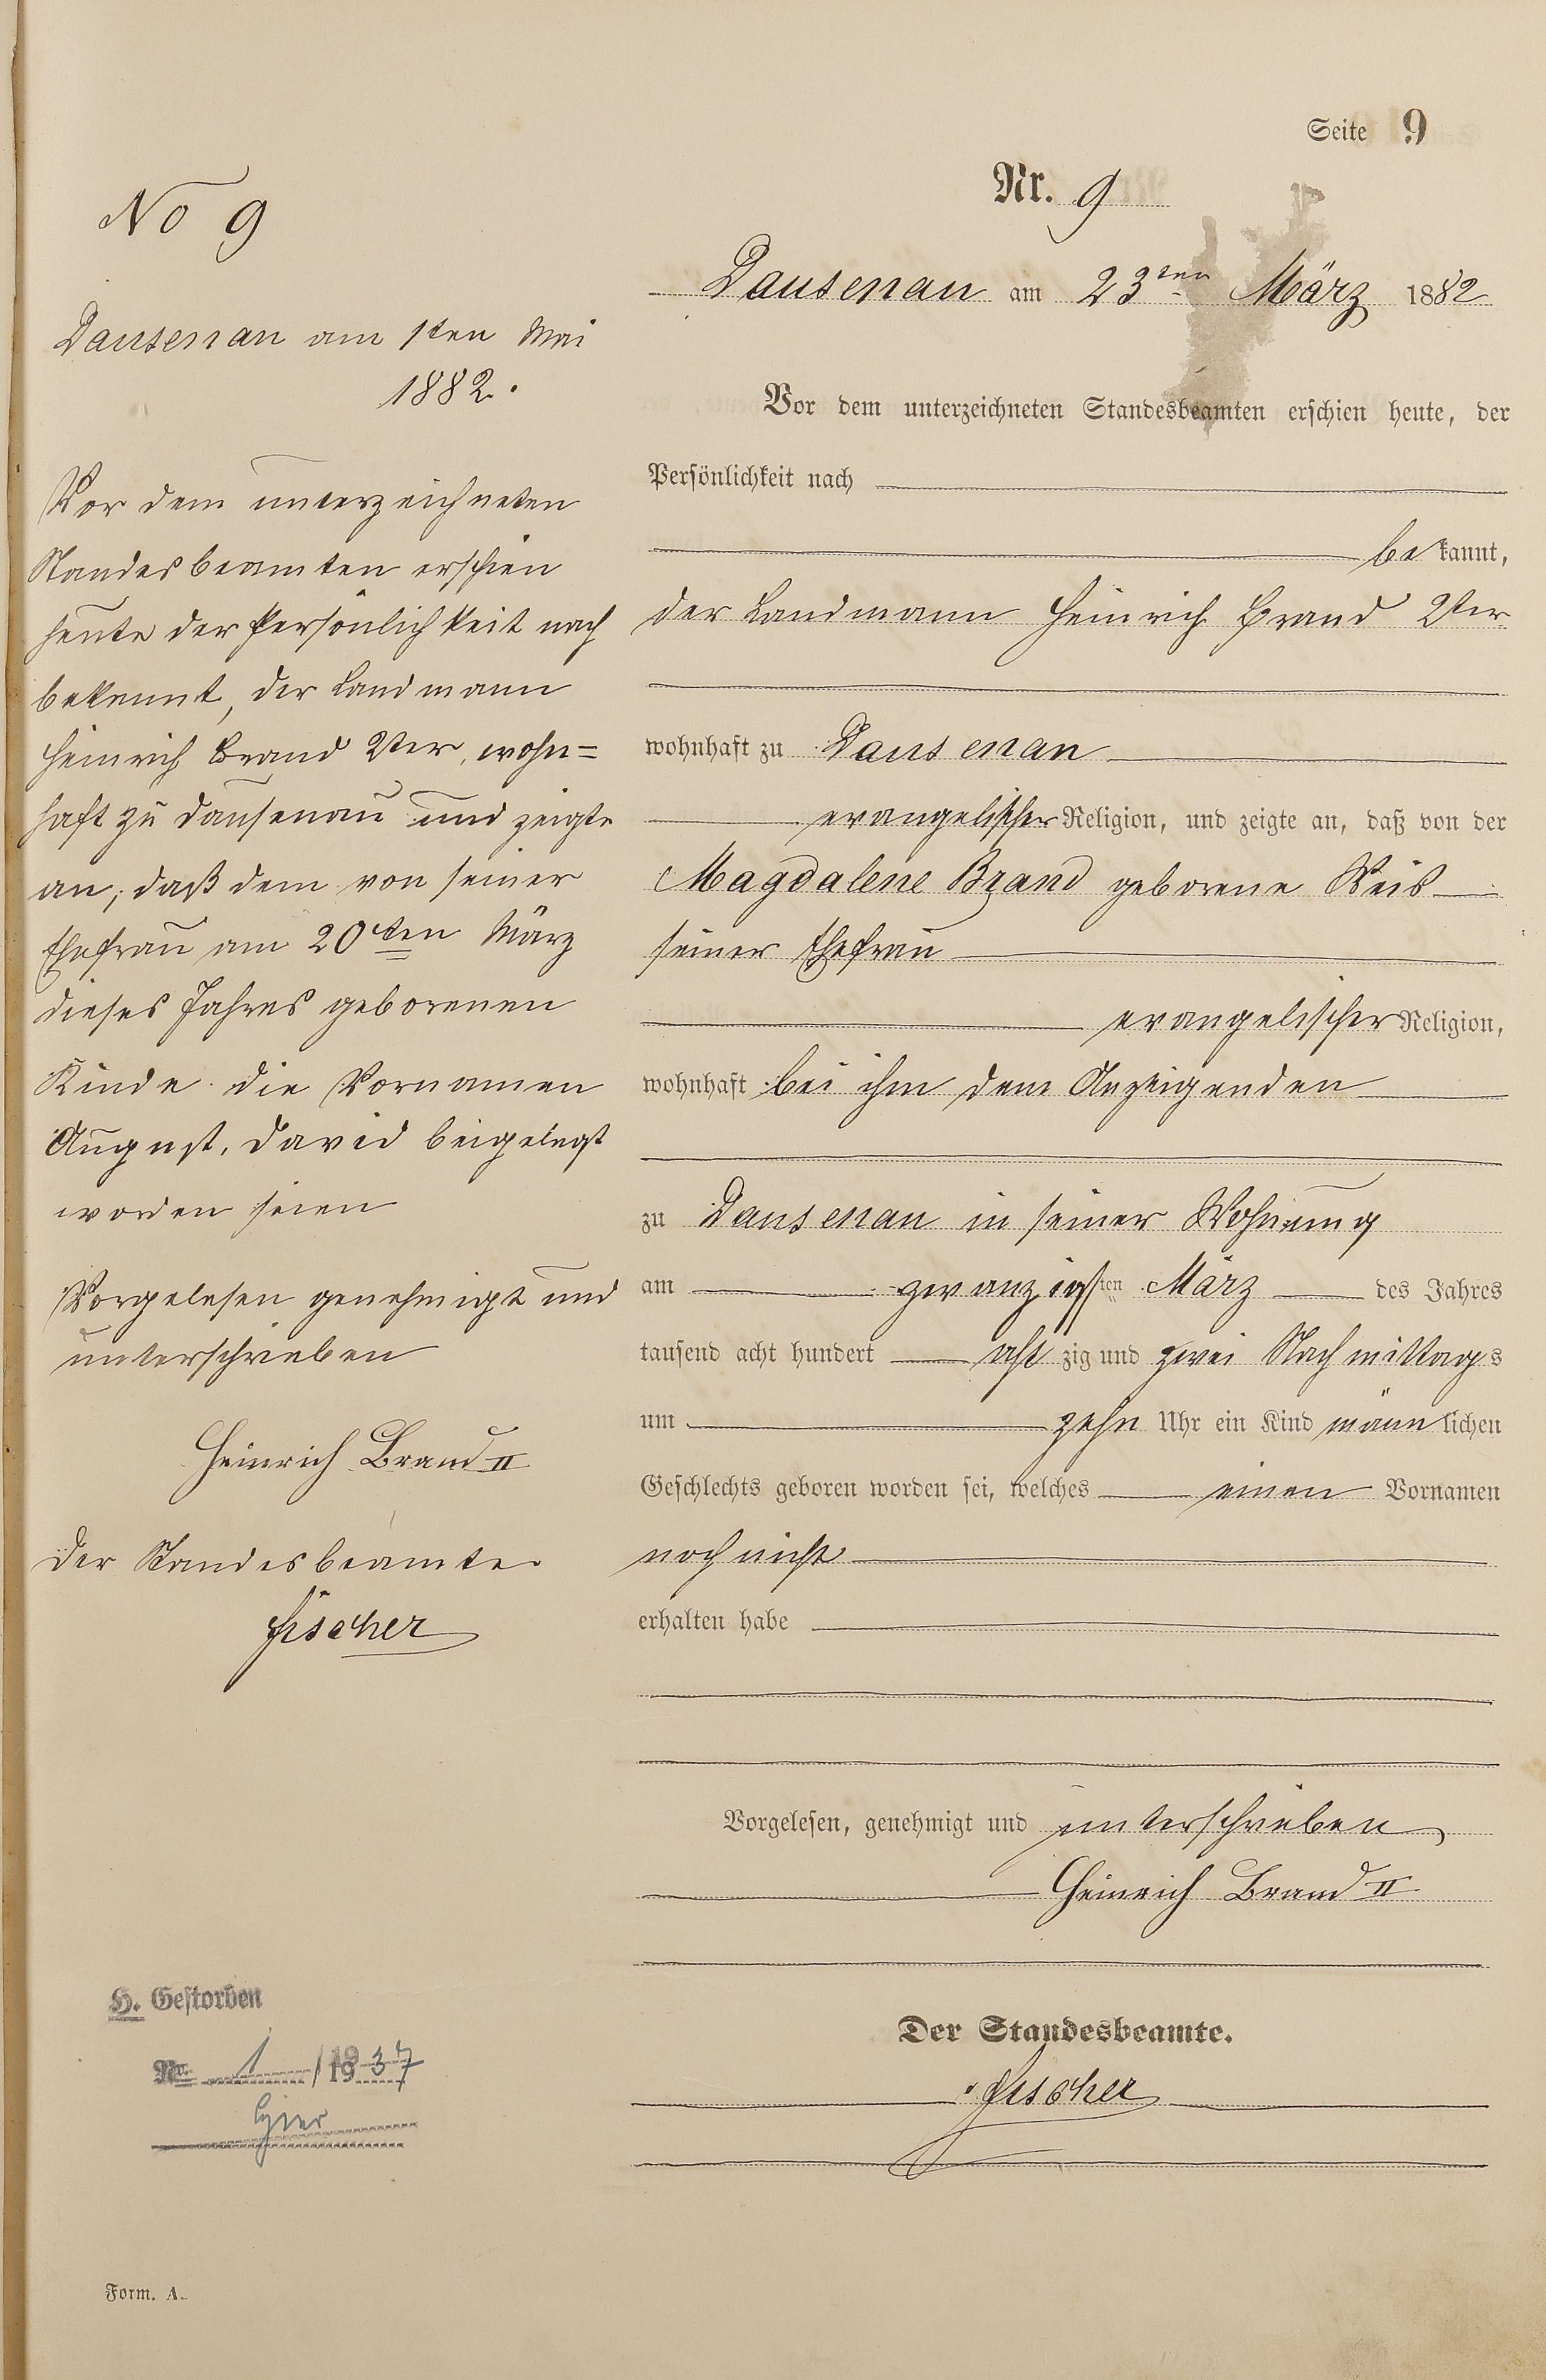 Seite 9
Nr. 9
Dausenau am 23ten März 1882
Vor dem unterzeichneten Standesbeamten erschien heute, der
Persönlichkeit nach
bekannt,
der Landmann Heinrich Brand 2ter
wohnhaft zu Dausenau
evangelischer Religion, und zeigte an, daß von der
Magdalene Brand geborene Weis
seiner Ehefrau
evangelischer Religion,
wohnhaft bei ihm dem Anzeigenden
zu Dausenau in seiner Wohnung
am zwanzigsten März des Jahres
tausend acht hundert achtzig und zwei Nachmittags
um zehn Uhr ein Kind männlichen
Geschlechts geboren worden sei, welches einen Vornamen
noch nicht
erhalten habe
Vorgelesen, genehmigt und unterschrieben
Heinrich Brand II
Der Standesbeamte.
Fischer
No 9
Dausenau am 1ten Mai
1882.
Vor dem unterzeichneten
Standesbeamten erschien
heute der Persönlichkeit nach
bekennt, der Landmann
Heinrich Brand 2ter, wohn=
haft zu Dausenau und zeigte
an, daß dem von seiner
Ehefrau am 20ten März
dieses Jahres geborenen
Kinde die Vornamen
August, David beigelegt
worden seien
Vorgelesen genehmigt und
unterschrieben
Heinrich Brand II
Der Standesbeamte
Fischer
H. Gestorben
Nr. 1/1937
Form. A.